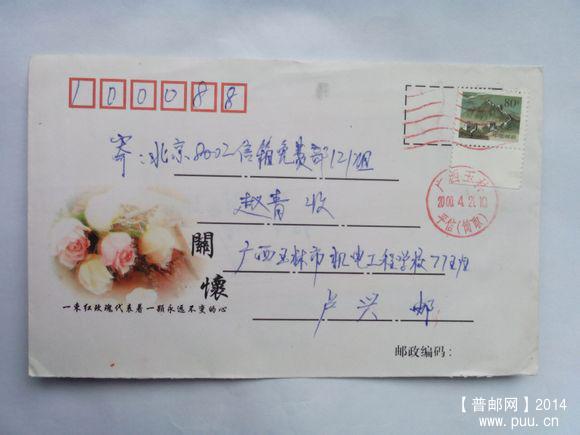 100088
80
寄:北京8002信箱免费部121组
赵青 收
广西玉林
2000.4.21.10
平信(筒取)
關懷
广西玉林市机电工程学校77班
卢兴 邮
一束红玫瑰代表着一颗永远不变的心
邮政编码:
【普邮网】2014
www.puu.cn